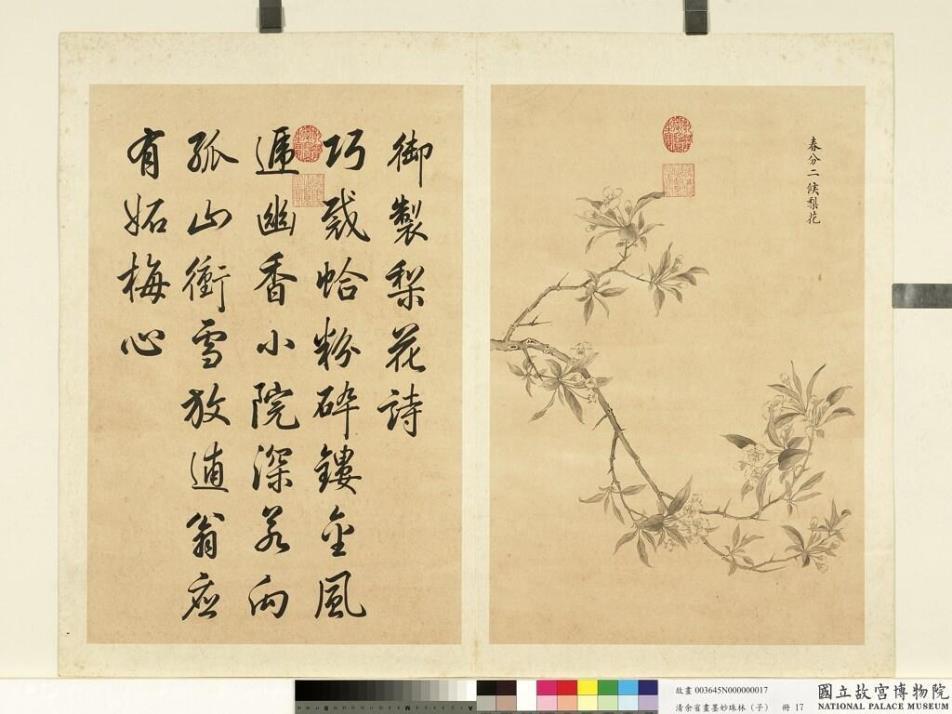 春分二候梨花
御製梨花詩
巧戕蛤粉碎鏤金風
遞幽香小院深若向
孤山衝雪放逋翁應
有妬梅心
故畫 003645N000000017
清余省畫墨妙珠林(子) 冊 17
國立故宮博物院
NATIONAL PALACE MUSEUM